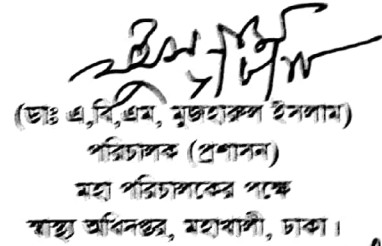 (ডাঃ এ,বি,এম, মুজহারুল ইসলাম)
পরিচালক (প্রশাসন)
মহা পরিচালকের পক্ষে
স্বাস্থ্য অধিদপ্তর, মহাখালী, ঢাকা।